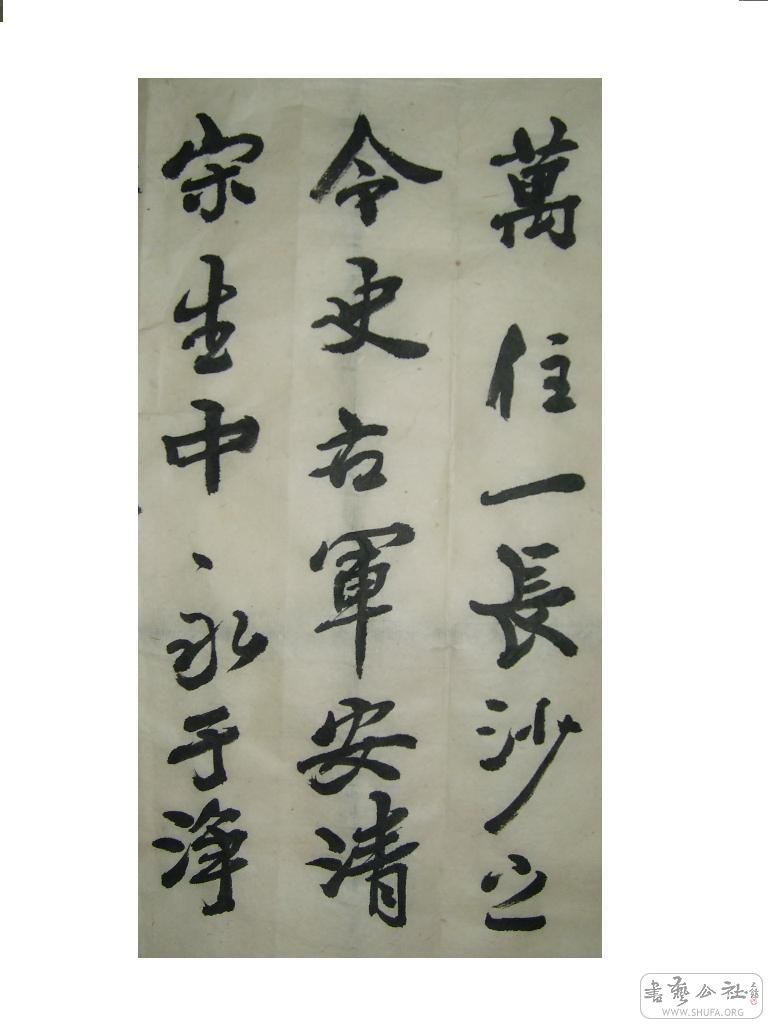 萬住一長沙之
令史古軍安清
宗生中永于淨
書藝公社
WWW.SHUFA.ORG